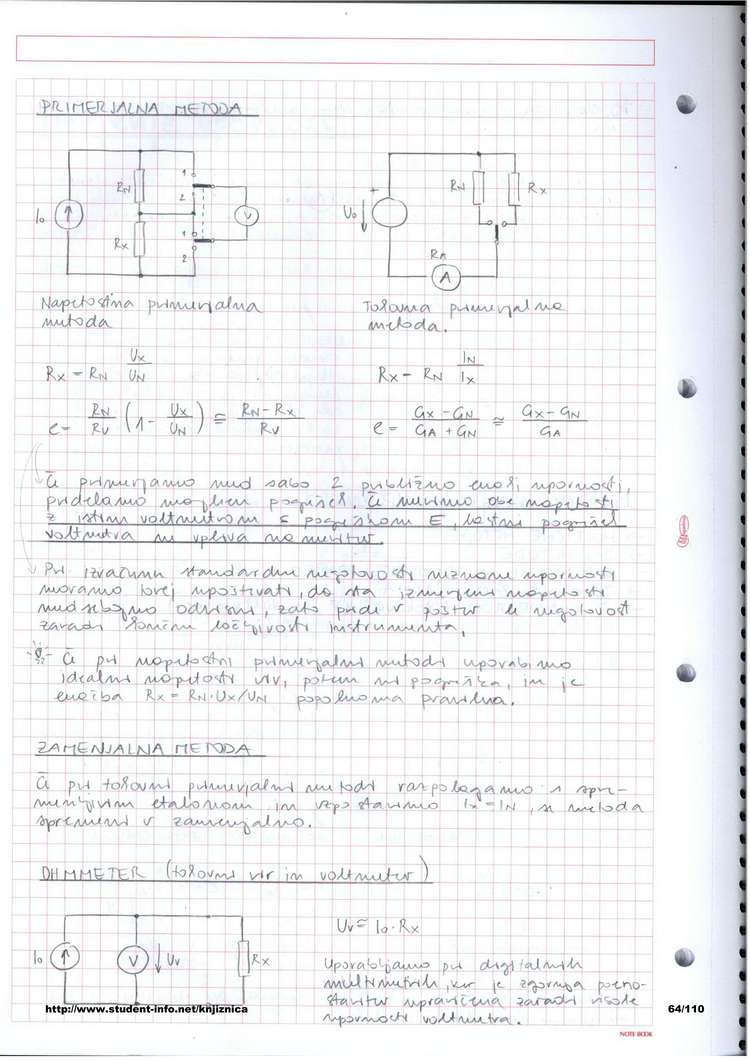 PRIMERJALNA METODA
I₀ RN RX 1 2 1 2 V
U₀ + RN RX RA A
Napetostna primerjalna
metoda
Tokovna primerjalna
metoda.
RX = RN UX/UN
RX = RN IN/IX
e = RN/RV (1 - UX/UN) ≅ (RN - RX)/RV
e = (GX - GN)/(GA + GN) ≅ (GX - GN)/GA
Če primerjamo med sabo 2 približno enaki upornosti,
pridelamo majhen pogrešek. Če merimo obe napetosti
z istim voltmetrom s pogreškom E, lastni pogrešek
voltmetra ne vpliva na meritev.
Pri izračunu standardne negotovosti neznane upornosti
moramo torej upoštevati, da sta izmerjeni napetosti
medsebojno odvisni, zato pride v poštev le negotovost
zaradi končne ločljivosti instrumenta.
Če pri napetostni primerjalni metodi uporabimo
idealni napetosti vir, potem ni pogreška, in je
enačba RX = RN·UX/UN popolnoma pravilna.
ZAMENJALNA METODA
Če pri tokovni primerjalni metodi razpolagamo s spre-
menljivim etalonom in vzpostavimo IX = IN, se metoda
spremeni v zamenjalno.
OHMMETER (tokovni vir in voltmeter)
I₀ V UV RX
UV = I₀·RX
Uporabljamo pri digitalnih
multimetrih, ker je zgornja poeno-
stavitev upravičena zaradi visoke
upornosti voltmetra.
http://www.student-info.net/knjiznica
64/110
NOTE BOOK